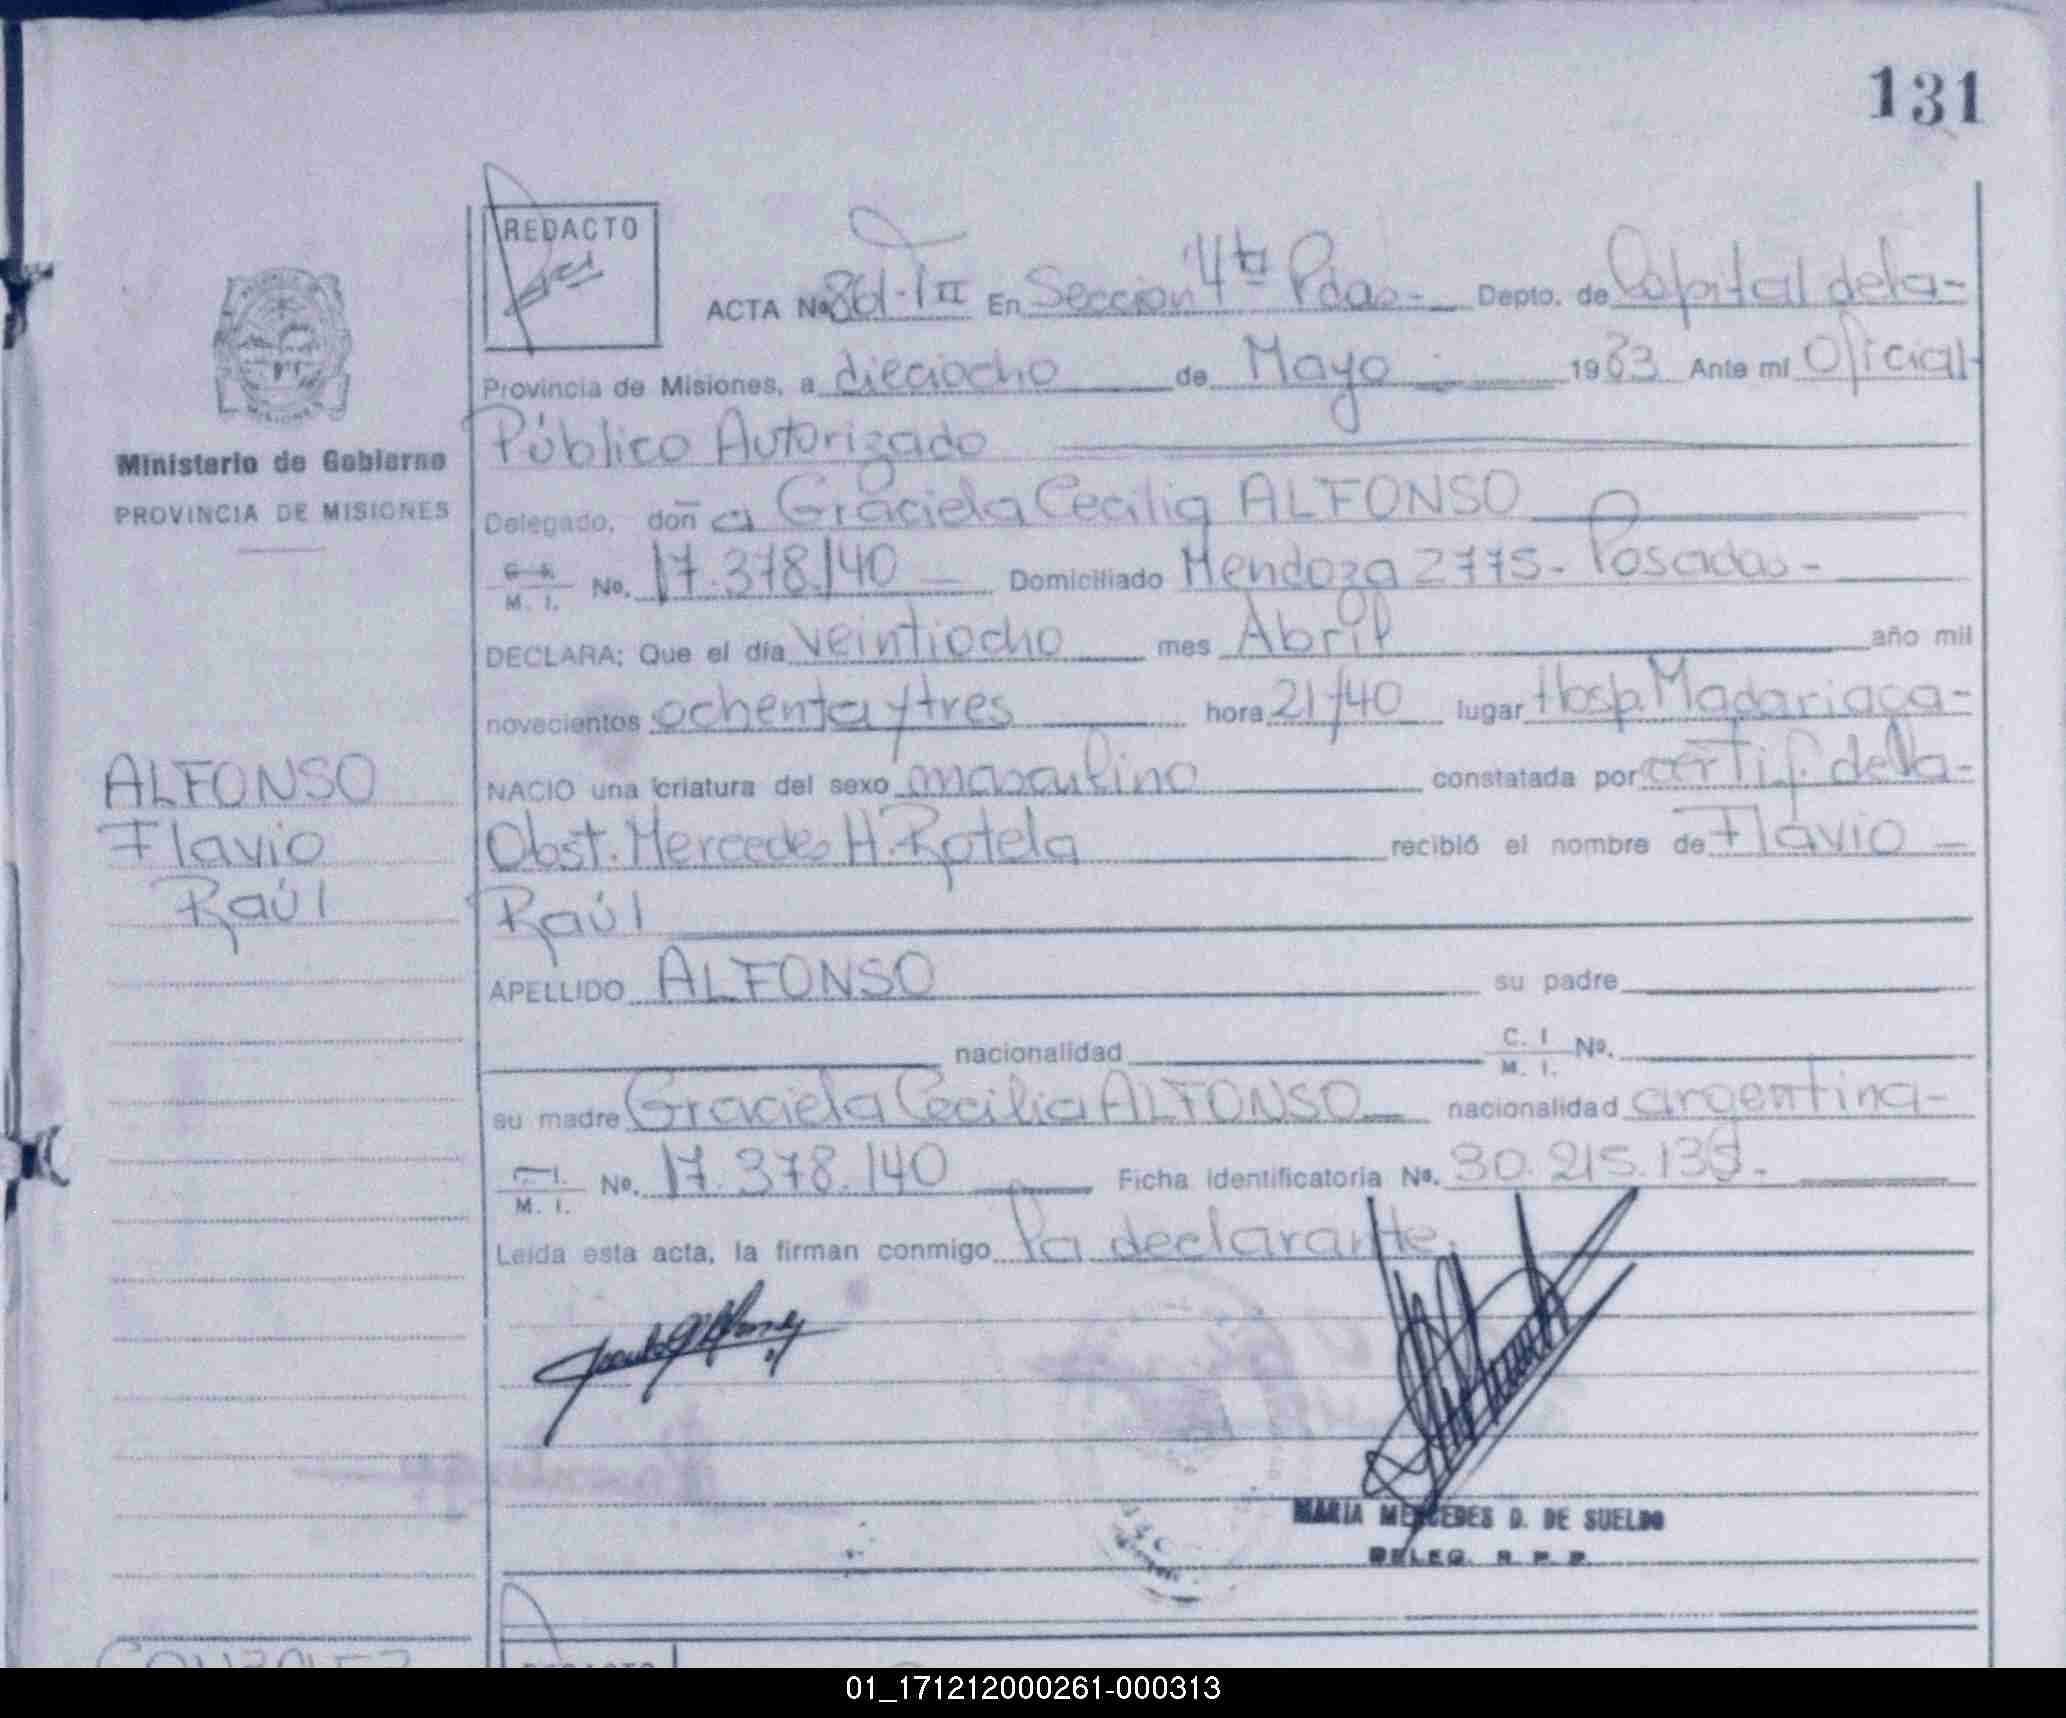 131
REDACTO
ACTA Nº 861-TIII En Sección 4ta Pdas- Depto. de Capital de la-
Provincia de Misiones, a dieciocho de Mayo 1983 Ante mí Oficial
Público Autorizado
Ministerio de Gobierno
PROVINCIA DE MISIONES
Delegado, doñ a Graciela Cecilia ALFONSO
M. I. No. 17.378.140 Domiciliado Mendoza 2775- Posadas-
DECLARA: Que el día veintiocho mes Abril año mil
novecientos ochenta y tres hora 21/40 lugar Hosp. Madariaga-
NACIO una criatura del sexo masculino constatada por certif. de la-
Obst. Mercedes H. Rotela recibió el nombre de Flavio
Raúl
ALFONSO
Flavio
Raúl
APELLIDO ALFONSO su padre
nacionalidad C. I M. I. Nº.
su madre Graciela Cecilia ALFONSO nacionalidad argentina-
M. I. Nº. 17.378.140 Ficha identificatoria Nº. 30.215.135.-
Leída esta acta, la firman conmigo la declarante.
MARIA MERCEDES D. DE SUELDO
DELEG. R. P. P.
01_171212000261-000313